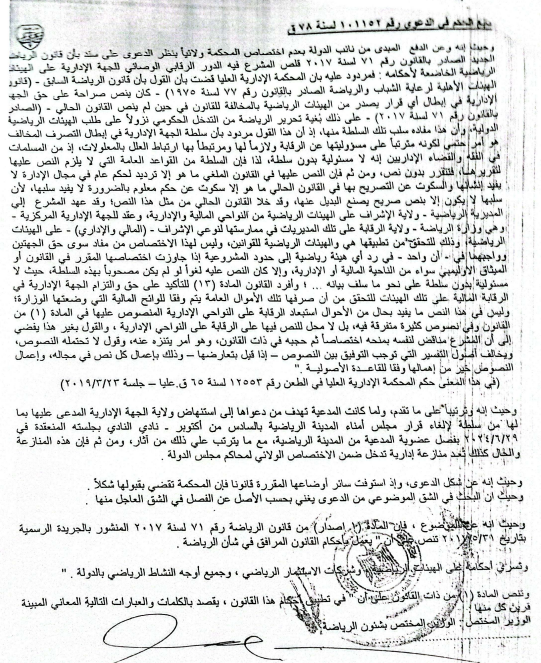 تابع الحكم في الدعوى رقم ١٠١١٥٢ لسنة ٧٨ ق
وحيث إنه وعن الدفع المبدى من نائب الدولة بعدم اختصاص المحكمة ولائياً بنظر الدعوى على سند بأن قانون الرياضة
الجديد الصادر بالقانون رقم ٧١ لسنة ٢٠١٧ قلص المشرع فيه الدور الرقابي الوصائي للجهة الإدارية على الهيئات
الرياضية الخاضعة لأحكامه : فمردود عليه بأن المحكمة الإدارية العليا قضت بأن القول بأن قانون الرياضة السابق - (قانون
الهيئات الأهلية لرعاية الشباب والرياضة الصادر بالقانون رقم ٧٧ لسنة ١٩٧٥) - كان ينص صراحة على حق الجهة
الإدارية في إبطال أي قرار يصدر من الهيئات الرياضية بالمخالفة للقانون في حين لم ينص القانون الحالي - (الصادر
بالقانون رقم ٧١ لسنة ٢٠١٧) - على ذلك بغية تحرير الرياضة من التدخل الحكومي نزولاً على طلب الهيئات الرياضية
الدولية، وأن هذا مفاده سلب تلك السلطة منها، إذ أن هذا القول مردود بأن سلطة الجهة الإدارية في إبطال التصرف المخالف
هو أمر حتمي لكونه مترتباً على مسؤوليتها عن الرقابة ولازماً لها ومرتبطاً بها ارتباط العلل بالمعلولات، إذ من المسلمات
في الفقه والقضاء الإداريين إنه لا مسئولية بدون سلطة، لذا فإن السلطة من القواعد العامة التي لا يلزم النص عليها
لتقريرها، فتتقرر بدون نص، ومن ثم فإن النص عليها في القانون الملغي ما هو إلا ترديد لحكم عام في مجال الإدارة لا
يفيد إنشائها والسكوت عن التصريح بها في القانون الحالي ما هو إلا سكوت عن حكم معلوم بالضرورة لا يفيد سلبها، لأن
سلبها لا يكون إلا بنص صريح يصنع البديل عنها، وقد خلا القانون الحالي من مثل هذا النص؛ وقد عهد المشرع إلى
المديرية الرياضية - ولاية الإشراف على الهيئات الرياضية من النواحي المالية والإدارية، وعقد للجهة الإدارية المركزية -
وهي وزارة الرياضة - ولاية الرقابة على تلك المديريات في ممارستها لنوعي الإشراف - (المالي والإداري) - على الهيئات
الرياضية، وذلك للتحقق من تطبيقها هي والهيئات الرياضية للقوانين، وليس لهذا الاختصاص من مفاد سوى حق الجهتين
وواجبهما في - آن واحد - في رد أي هيئة رياضية إلى حدود المشروعية إذا جاوزت اختصاصها المقرر في القانون أو
الميثاق الأوليمبي سواء من الناحية المالية أو الإدارية، وإلا كان النص عليه لغواً لو لم يكن مصحوباً بهذه السلطة، حيث لا
مسئولية بدون سلطة على نحو ما سلف بيانه ... ؛ وأفرد القانون المادة (١٣) للتأكيد على حق والتزام الجهة الإدارية في
الرقابة المالية على تلك الهيئات للتحقق من أن صرفها تلك الأموال العامة يتم وفقا للوائح المالية التي وضعتها الوزارة؛
وليس في هذا النص ما يفيد بحال من الأحوال استبعاد الرقابة على النواحي الإدارية المنصوص عليها في المادة (١) من
القانون وفي نصوص كثيرة متفرقة فيه، بل لا محل للنص فيها على الرقابة على النواحي الإدارية ، والقول بغير هذا يفضي
إلى أن المشرع مناقض لنفسه بمنحه اختصاصاً ثم حجبه في ذات القانون، وهو أمر يتنزه عنه، وقول لا تحتمله النصوص،
ويخالف أصول التفسير التي توجب التوفيق بين النصوص – إذا قيل بتعارضها – وذلك بإعمال كل نص في مجاله، وإعمال
النصوص خير من إهمالها وفقا للقاعدة الأصولية ."
(في هذا المعنى حكم المحكمة الإدارية العليا في الطعن رقم ١٢٥٥٣ لسنة ٦٥ ق.عليا – جلسة ٢٠١٩/٣/٢٣)
وحيث إنه وترتيباً على ما تقدم، ولما كانت المدعية تهدف من دعواها إلى استنهاض ولاية الجهة الإدارية المدعى عليها بما
لها من سلطة لإلغاء قرار مجلس أمناء المدينة الرياضية بالسادس من أكتوبر - نادي النادي بجلسته المنعقدة في
٢٠٢٤/٦/٢٩ بفصل عضوية المدعية من المدينة الرياضية، مع ما يترتب علي ذلك من آثار، ومن ثم فإن هذه المنازعة
والحال كذلك تعد منازعة إدارية تدخل ضمن الاختصاص الولائي لمحاكم مجلس الدولة .
وحيث إنه عن شكل الدعوى، وإذ استوفت سائر أوضاعها المقررة قانونا فإن المحكمة تقضي بقبولها شكلاً .
وحيث ان البحث في الشق الموضوعي من الدعوى يغني بحسب الأصل عن الفصل في الشق العاجل منها .
وحيث إنه عن الموضوع ، فإن المادة (١ إصدار) من قانون الرياضة رقم ٧١ لسنة ٢٠١٧ المنشور بالجريدة الرسمية
بتاريخ ٢٠١٧/٥/٣١ تنص على أن " يعمل بأحكام القانون المرافق في شأن الرياضة .
وتسري أحكامه على الهيئات الرياضية، وشركات الاستثمار الرياضي ، وجميع أوجه النشاط الرياضي بالدولة . "
وتنص المادة (١) من ذات القانون على أن " في تطبيق أحكام هذا القانون ، يقصد بالكلمات والعبارات التالية المعاني المبينة
قرين كل منها :
الوزير المختص : الوزير المختص بشئون الرياضة